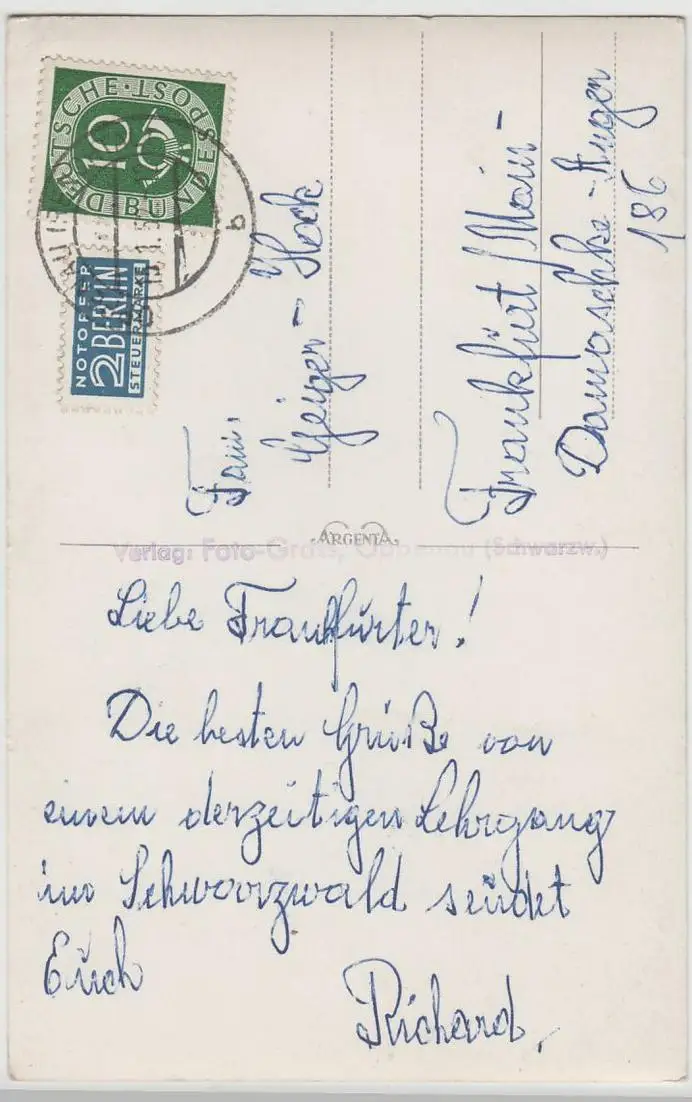 DEUTSCHE · BUNDESPOST
10
NOTOPFER
2 BERLIN
STEUERMARKE
b
Fam.
Geiger - Hock
Frankfurt/Main -
Damaschke - Anger
186
ARGENTA
Verlag: Foto-Grats, Oppenau (Schwarzw.)
Liebe Frankfurter!
Die besten Grüße von
einem derzeitigen Lehrgang
im Schwarzwald sendet
Euch
Richard.